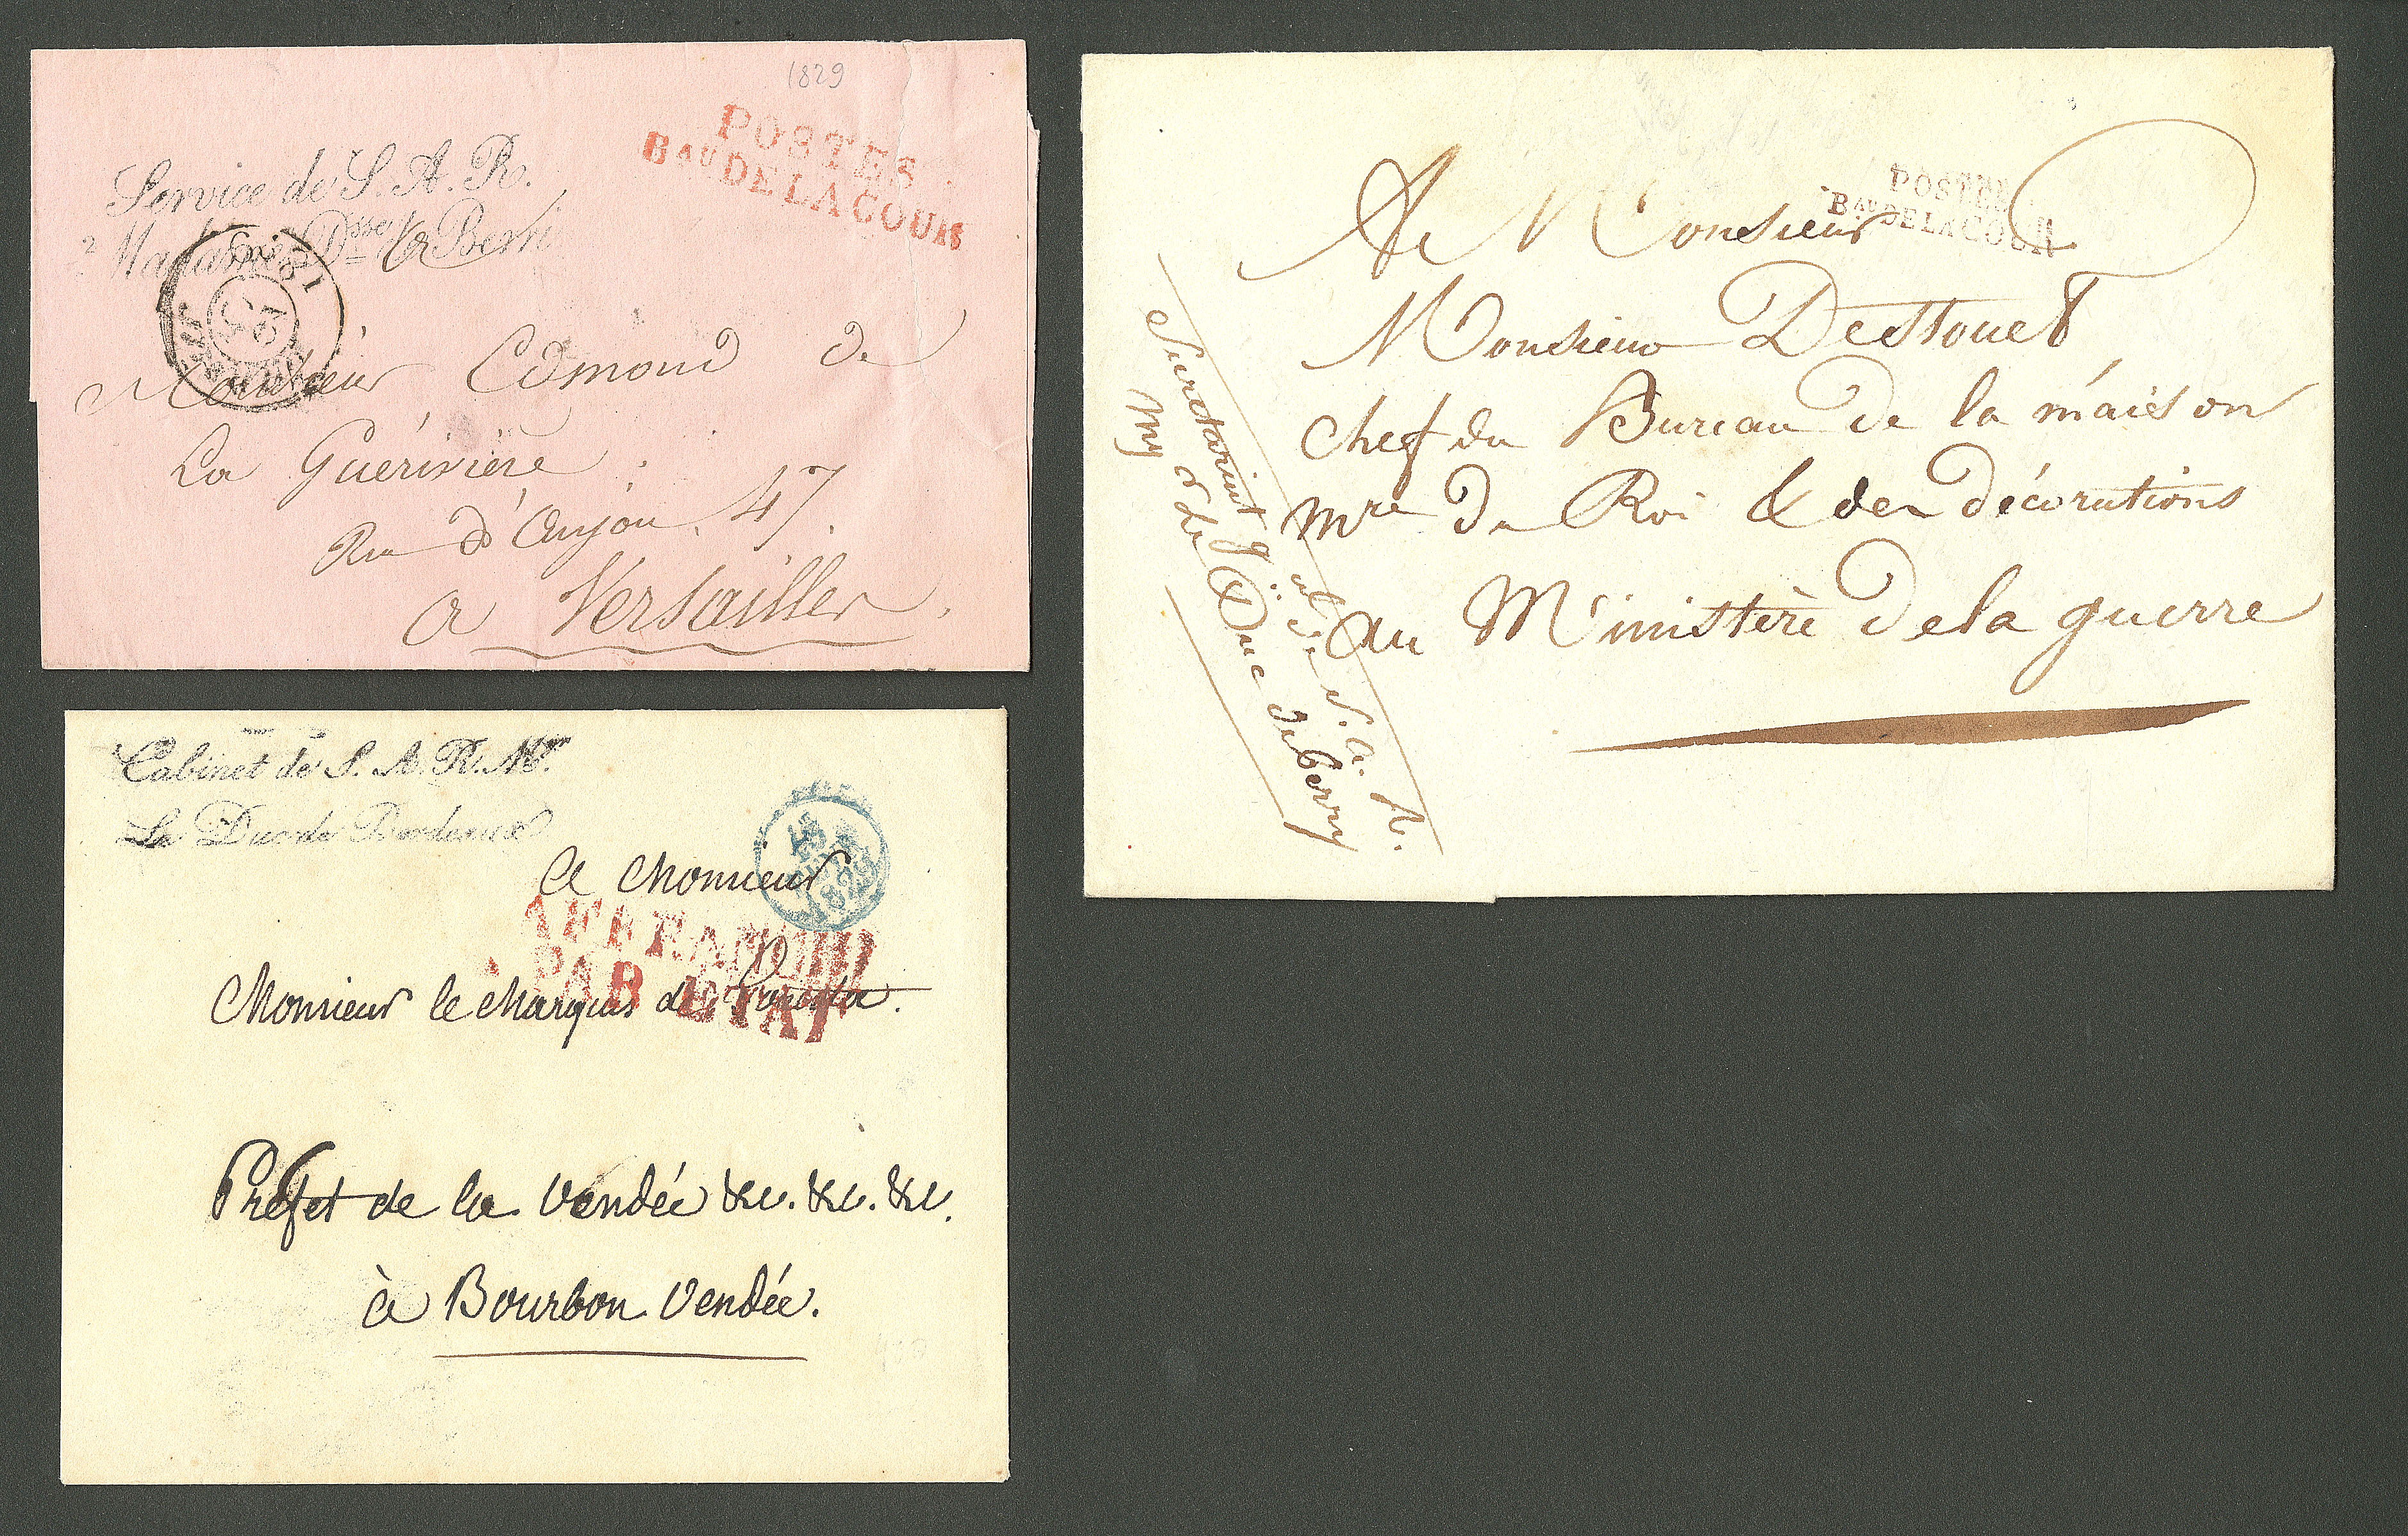 1829
POSTES
BAU DE LA COUR
Service de S. A. R.
Madame Dsse de Berri
Monsieur Edmond de
La Guérivière
Rue d'Anjou. 47.
a Versailles.
POSTES
BAU DE LA COUR
A Monsieur
Monsieur Destouet
chef du Bureau de la maison
mre du Roi & des décorations
au Ministère de la guerre
Secretariat gal de S. A. R.
Mgr le Duc de Berry
Cabinet de S. A. R. Mgr.
Le Duc de Bordeaux
1829
A Monsieur
AFFRANCHI
PAR ETAT
Monsieur le Marquis de Foresta.
Préfet de la Vendée &c. &c. &c.
à Bourbon Vendée.